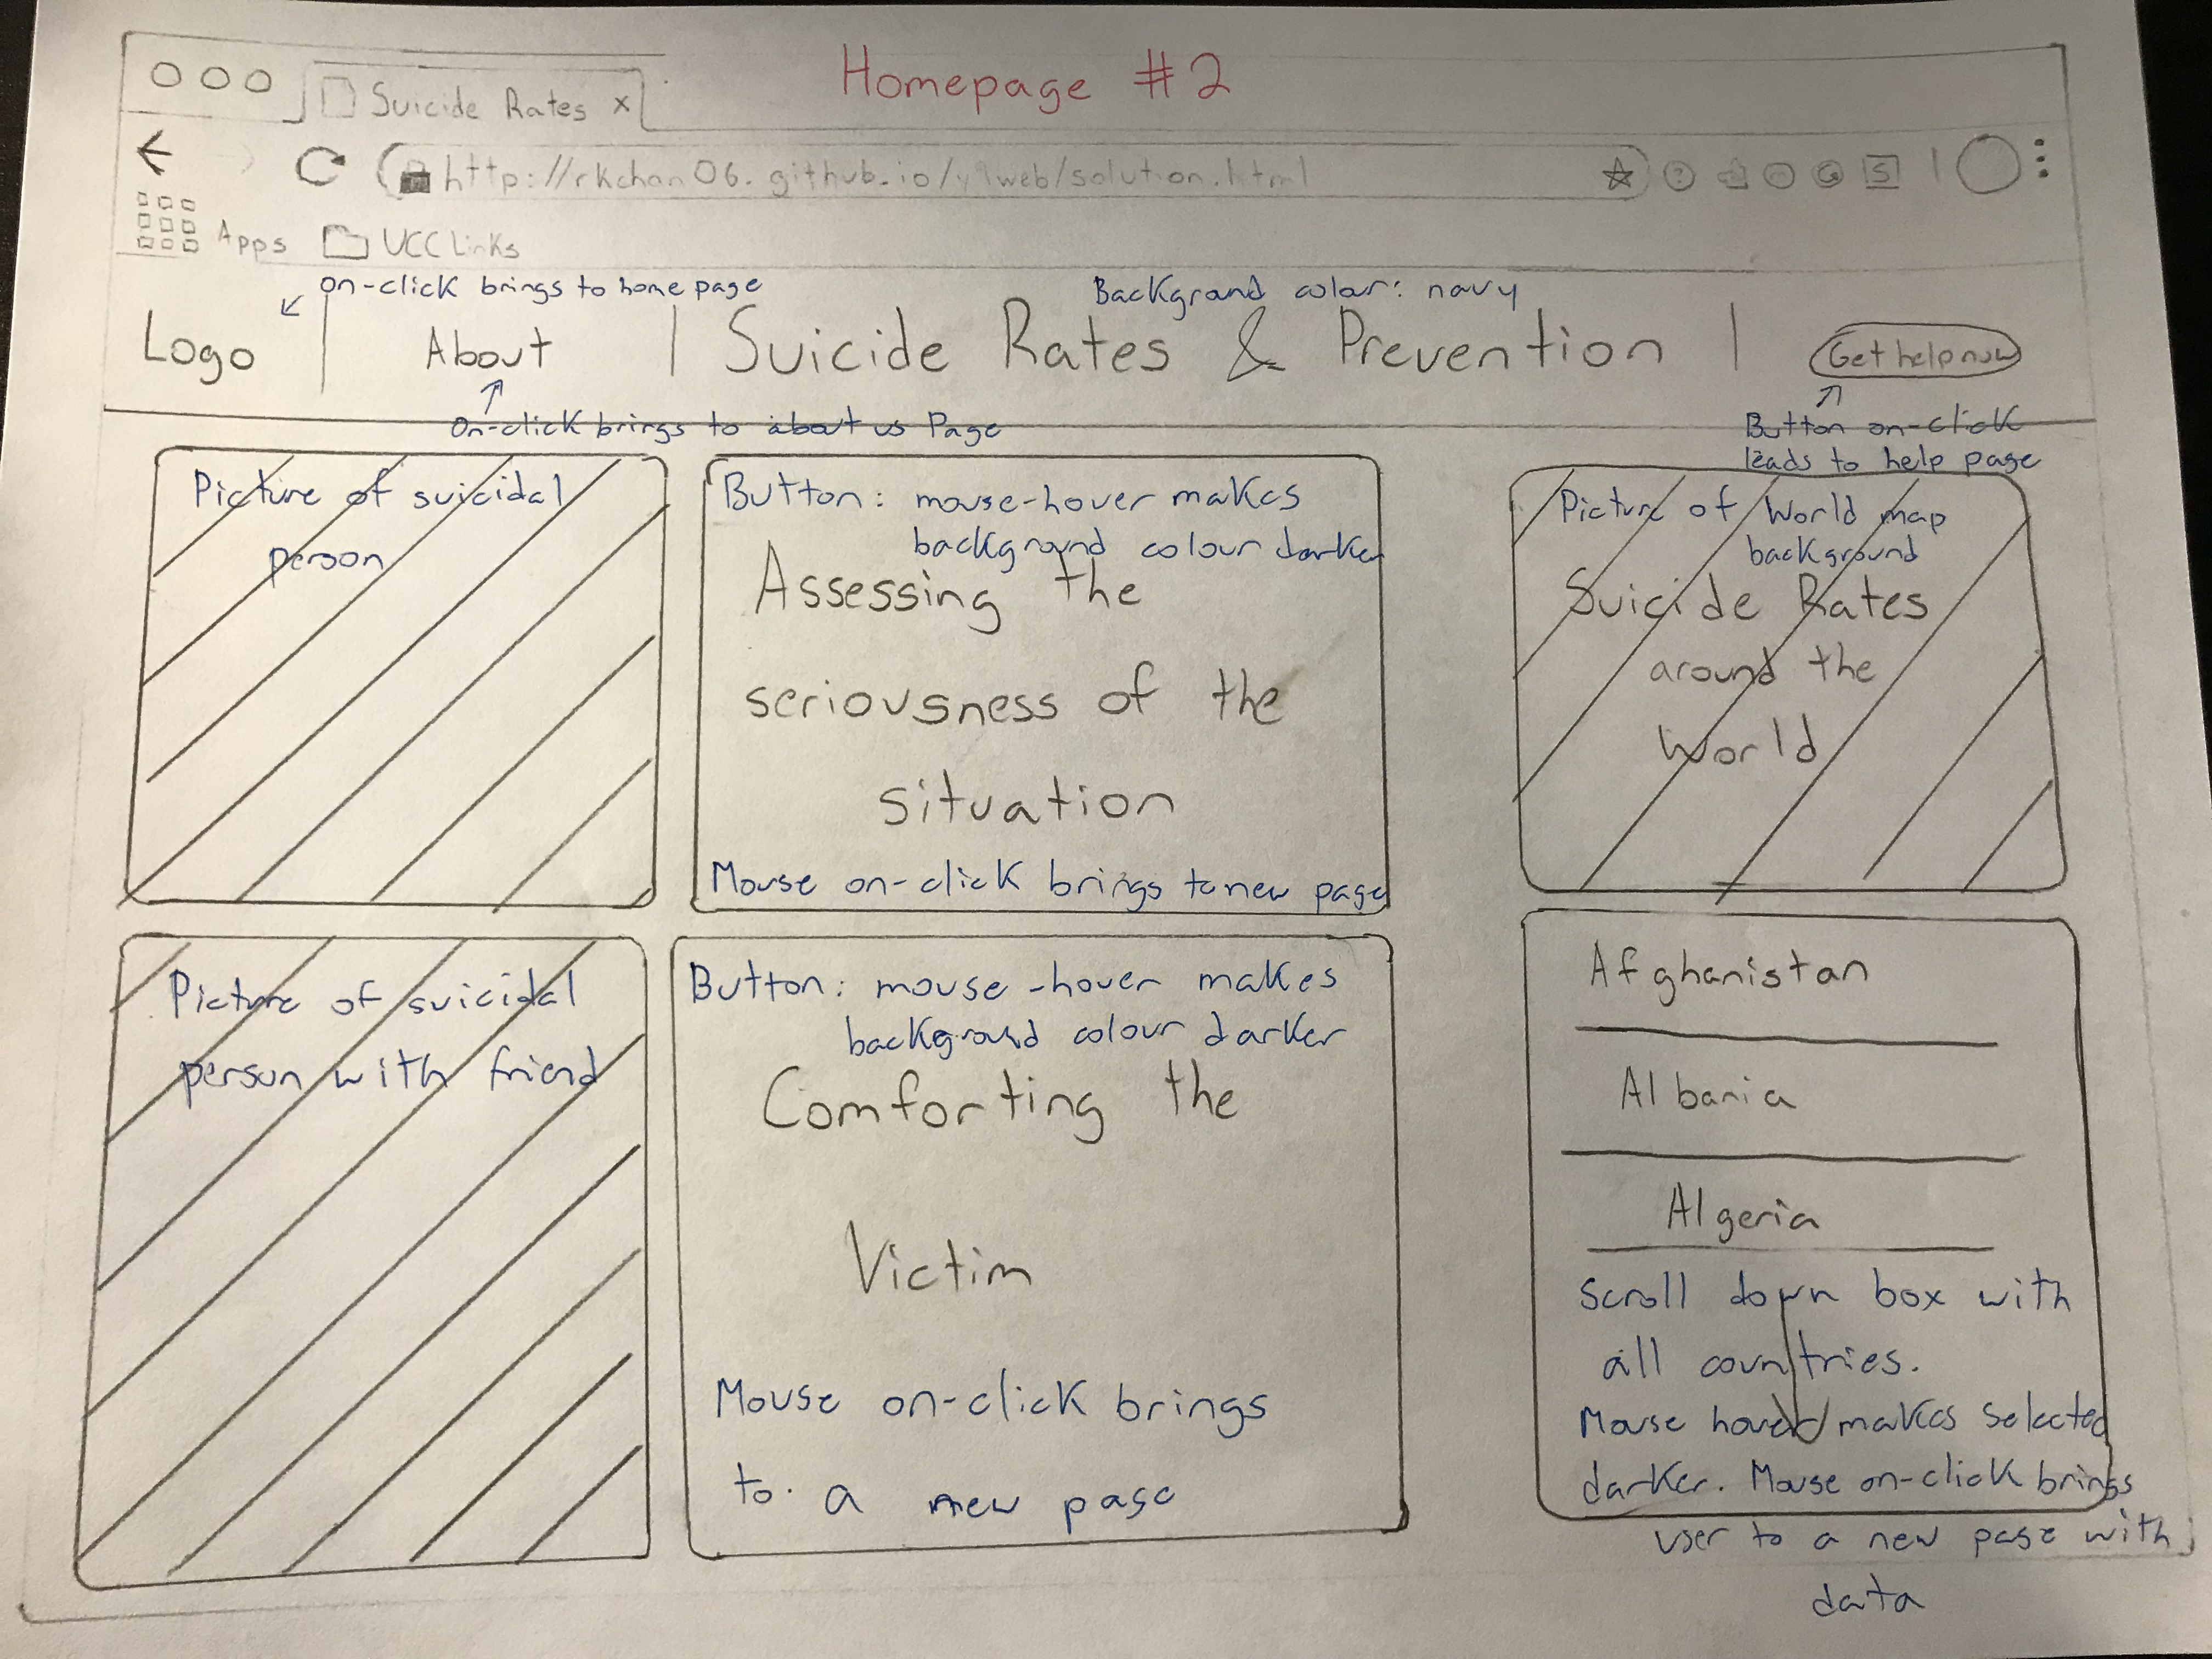 Homepage #2
Suicide Rates x
http://rkchan06.github.io/y9web/solution.html
Apps UCC Links
On-click brings to home page
Background color: navy
Logo | About | Suicide Rates & Prevention | Get help now
On-click brings to about us Page
Button on-click
leads to help page
Picture of suicidal
person
Button: mouse-hover makes
background colour darker
Assessing the
seriousness of the
situation
Mouse on-click brings to new page
Picture of World map
background
Suicide Rates
around the
World
Picture of suicidal
person with friend
Button: mouse-hover makes
background colour darker
Comforting the
Victim
Mouse on-click brings
to a new page
Afghanistan
Albania
Algeria
Scroll down box with
all countries.
Mouse hover makes selected
darker. Mouse on-click brings
user to a new page with
data